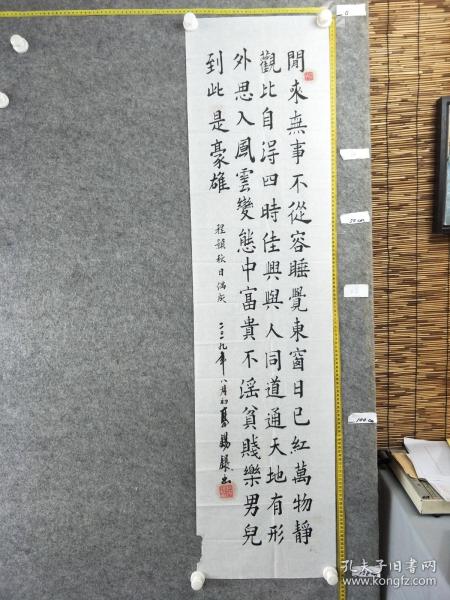 閒來無事不從容睡覺東窗日已紅萬物靜
觀比自得四時佳興與人同道通天地有形
外思入風雲變態中富貴不淫貧賤樂男兒
到此是豪雄
程顥秋日偶成
二〇一九年八月初
孔夫子旧书网
www.kongfz.com